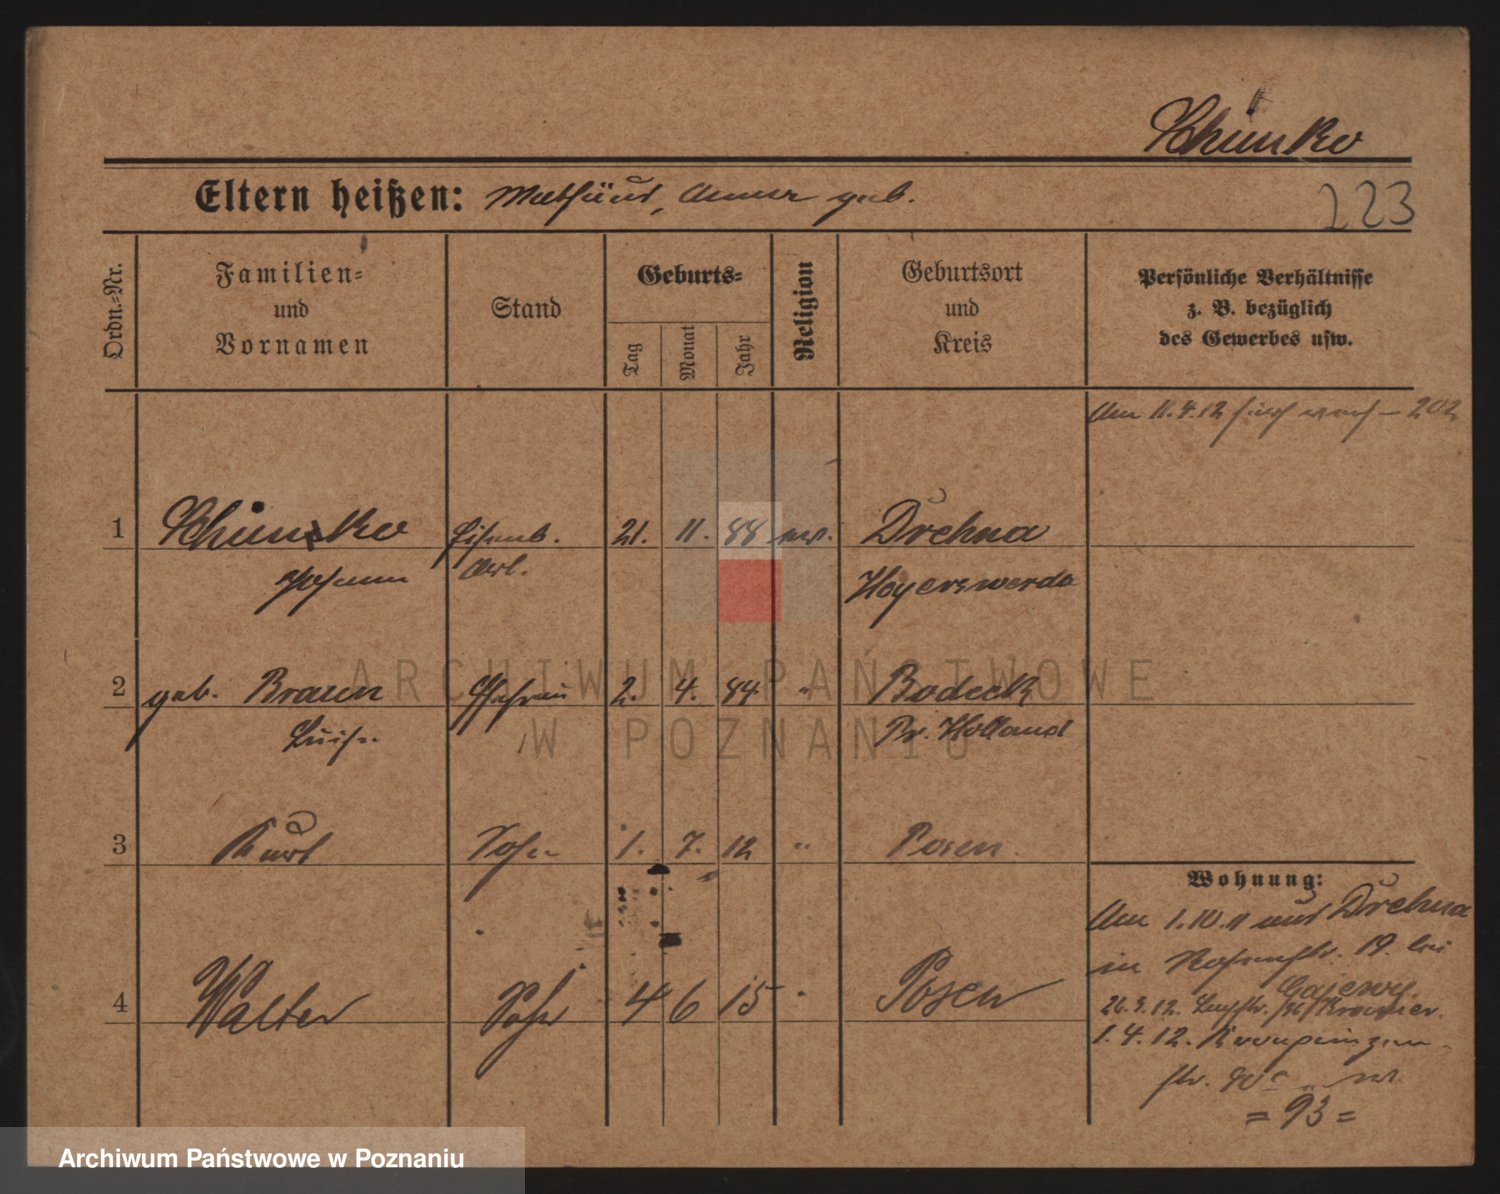 Schimko
Eltern heißen: Mathäus, Anna geb.
223
Ordn.-Nr.
Familien-
und
Vornamen
Stand
Geburts-
Tag
Monat
Jahr
Religion
Geburtsort
und
Kreis
Persönliche Verhältnisse
z. B. bezüglich
des Gewerbes usw.
Am 11.4.12 – 202
1 Schimko Eisenb. 21. 11. 88 ev. Drehna
Johann Arb. Hoyerswerda
2 geb. Braun Ehefrau 2. 4. 84 " Bodeck
Luise Pr. Holland
3 Kurt Sohn 1. 7. 12 " Posen
4 Walter Sohn 4 6 15 " Posen
Wohnung:
Am 1.10.11 aus Drehna
in 19. bei
Gajewy
26.3.12. Kramer.
1.4.12. Kronprinzen-
str.
= 93 =
ARCHIWUM PAŃSTWOWE
W POZNANIU
Archiwum Państwowe w Poznaniu